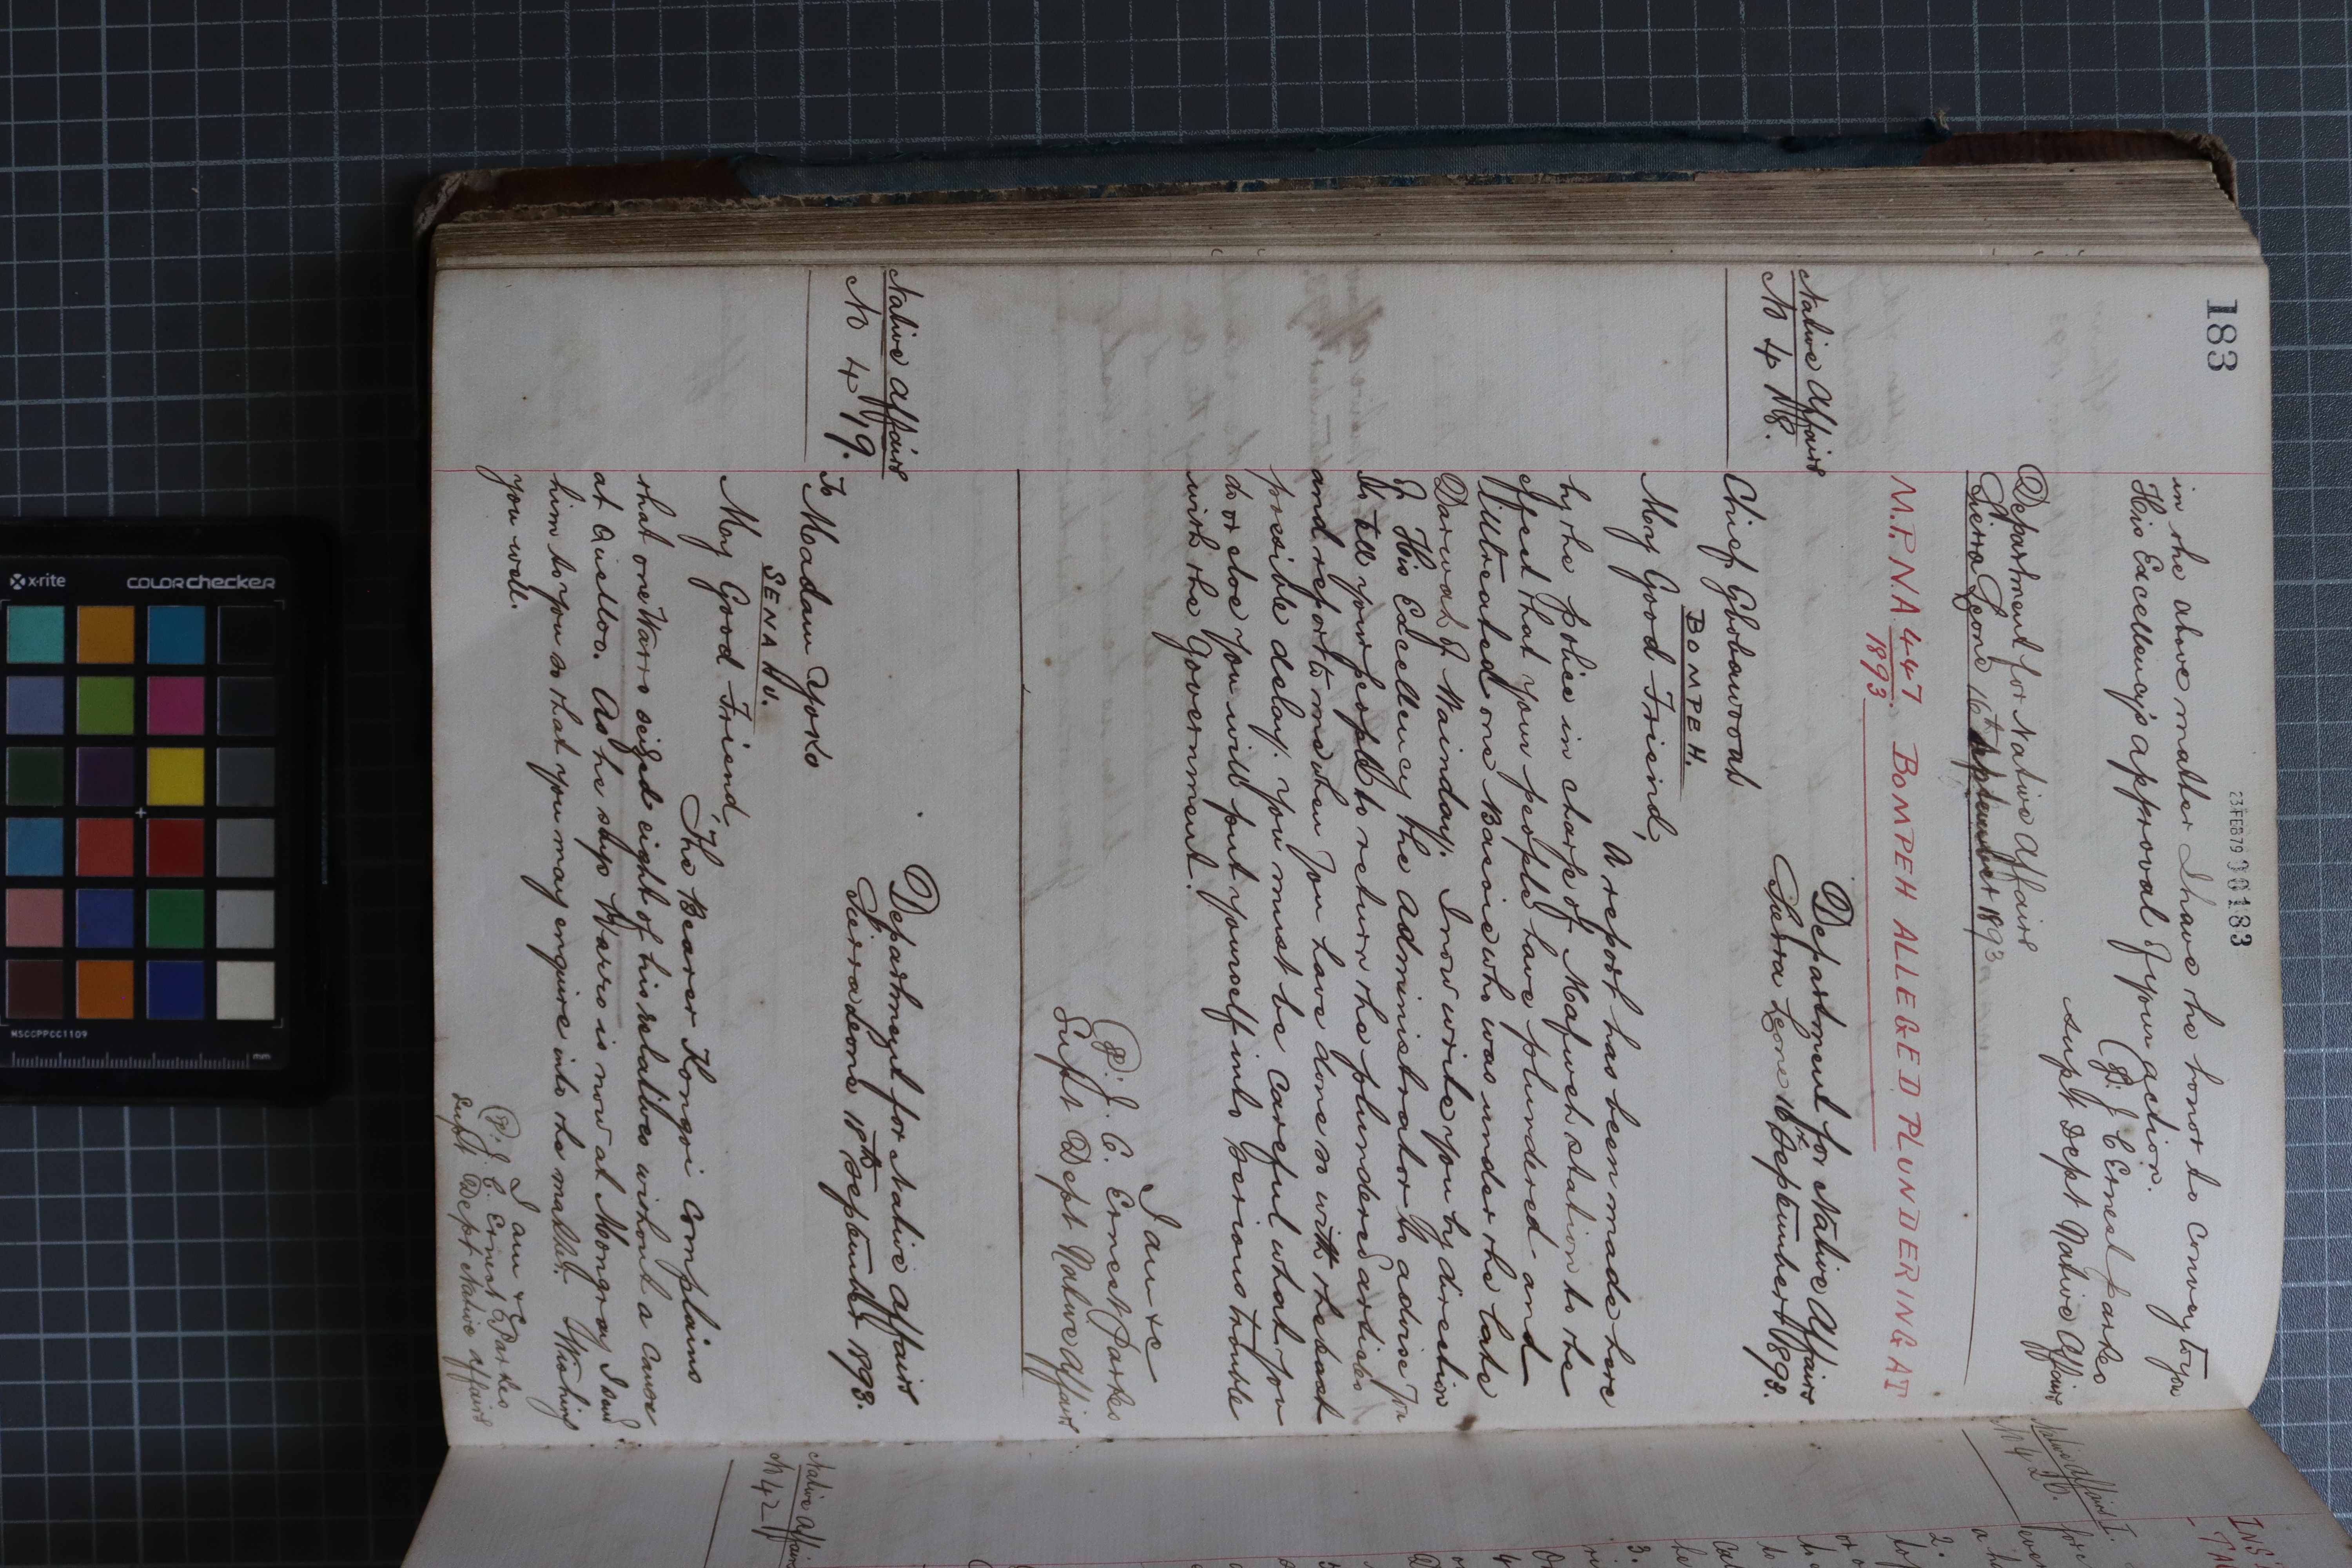 183
23FEB79 00183
in the above matter I have the honor to convey to you
His Excellency's approval of your action.
(Sd:) J C Ernest Parkes
Supt Dept Native Affairs
Department for Native Affairs
Sierra Leone 16th September 1893
M.P. NA 447/1893. BOMPEH ALLEGED PLUNDERING AT
Native Affairs
No 418.
Department for Native Affairs
Sierra Leone 16th September 1893.
Chief Gbobawoah
BOMPEH.
My Good Friend,
A report has been made here
by the police in charge of Mafweh station to the
effect that your people have plundered and
illtreated one Bassie who was under the late
Darwah of Mainday. I now write you by direction
of His Excellency the Administrator to advise you
to tell your people to return the plundered articles
and report to me when you have done so with the least
possible delay. You must be careful what you
do or else you will put yourself into serious trouble
with the Government.
I am &c
(Sd:) J. C. Ernest Parkes
Supt Dept Native Affairs
Native Affairs
No 419.
Department for Native Affairs
Sierra Leone 18th September 1893.
To Madam Yoko
SENAHU.
My Good Friend,
The Bearer Kongori complains
that one Warro seized eight of his relatives without a cause
at Quelloo. As he says Warro is now at Mongray I send
him to you so that you may enquire into the matter. Wishing
you well.
I am &c
(Sd:) J. C. Ernest Parkes
Supt Dept Native Affairs
Native Affairs
No 420.
Native Affairs
No 421
INS
2.
3.
x-rite
COLORchecker
MSCCPPCC1109
mm